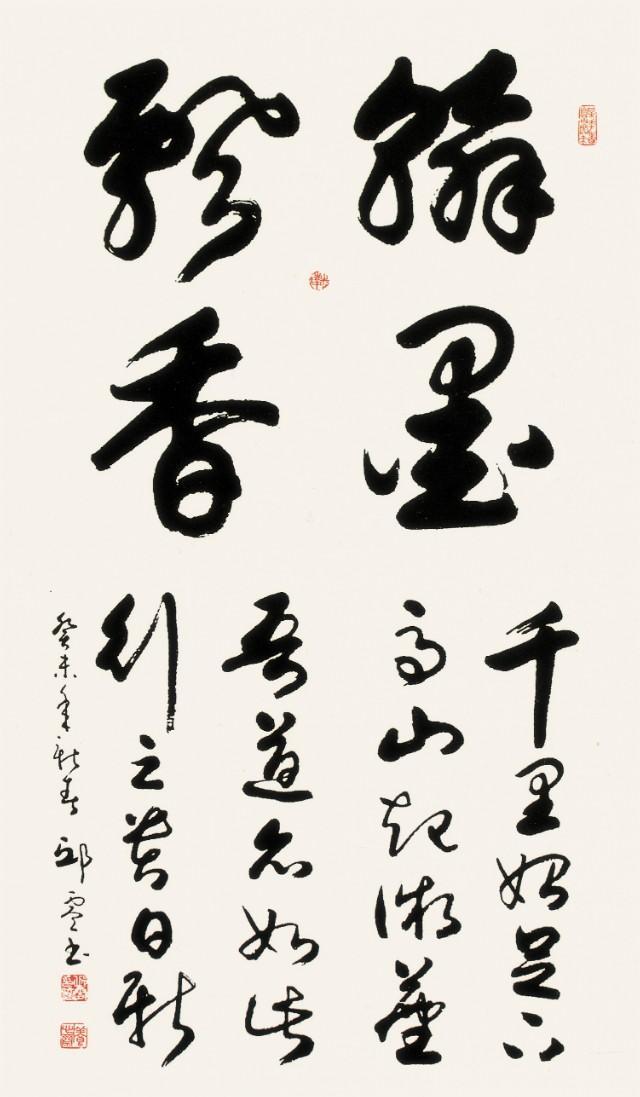 翰墨
飘香
千里始足下
高山起微尘
吾道亦如此
行之贵日新
癸未年新春 邱零书